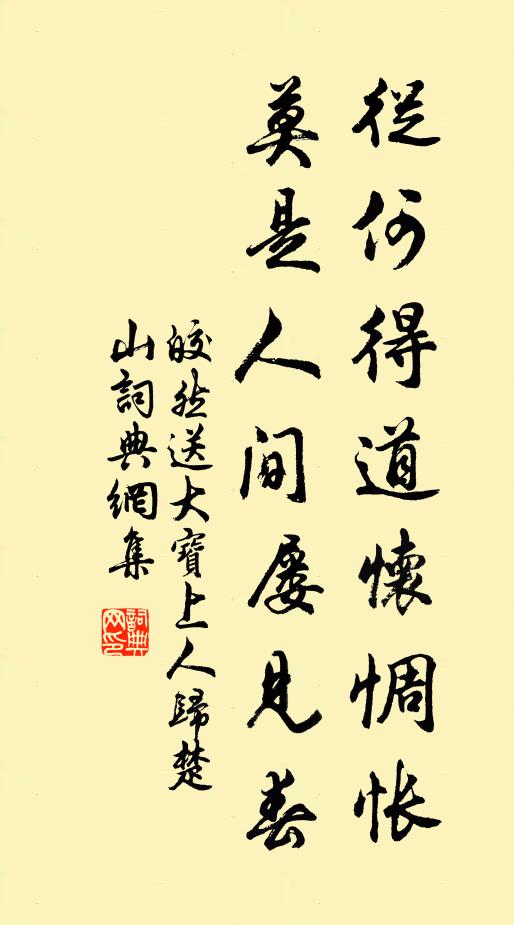 從何得道懷惆悵
莫是人間屢見春
皎然送大寶上人歸楚
山詞典網集
詞典
网印